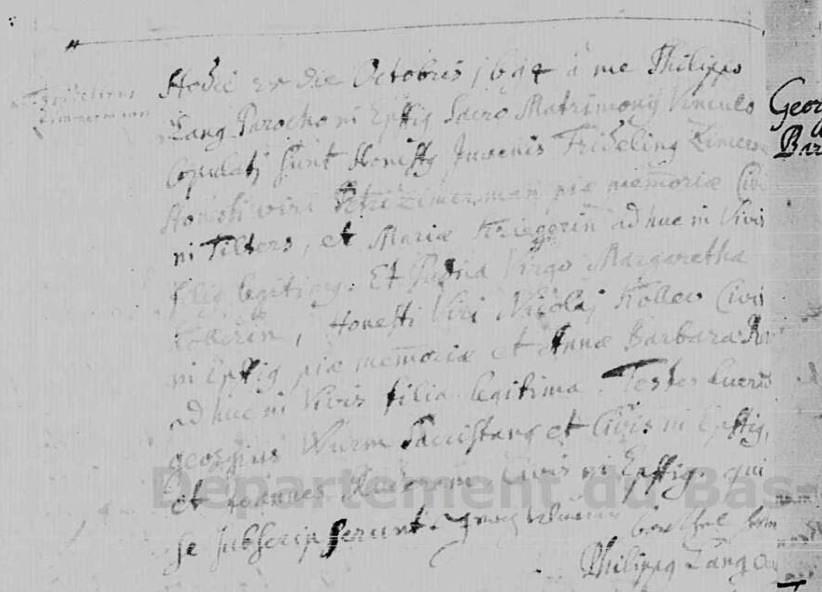 Fridelinus
Zimmermann
Hodie die Octobris 1694 à me Philippo
Lang Parocho in Epfig Sacro Matrimonij Vinculo
Copulatj sunt Honestg Juvenis Frideling Zimerm
Honesti viri Petri Zimerman piæ memoriæ Civi
in Tilsers, et Mariæ Kriegerin adhuc in Vivis
filig legitimg. Et Pudica Virgo Margaretha
Kollerin, Honesti Viri Nicolaj Koller Civis
in Epfig piæ memoriæ et Annæ Barbaræ
adhuc in Vivis filia legitima. Testes fuerūt
georgius Wurm Sacristang et Civis in Epfig,
et Joannes Civis in Epfig. qui
se subscripserunt.
Philippg Lang
Geor
Bar
Département du Bas-